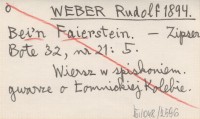 WEBER Rudolf 1894.
Bei'n Faierstein. — Zipser
Bote 32, nr 21: 5.
Wiersz w spiskoniem.
gwarze o Łomnickiej Kolebie.